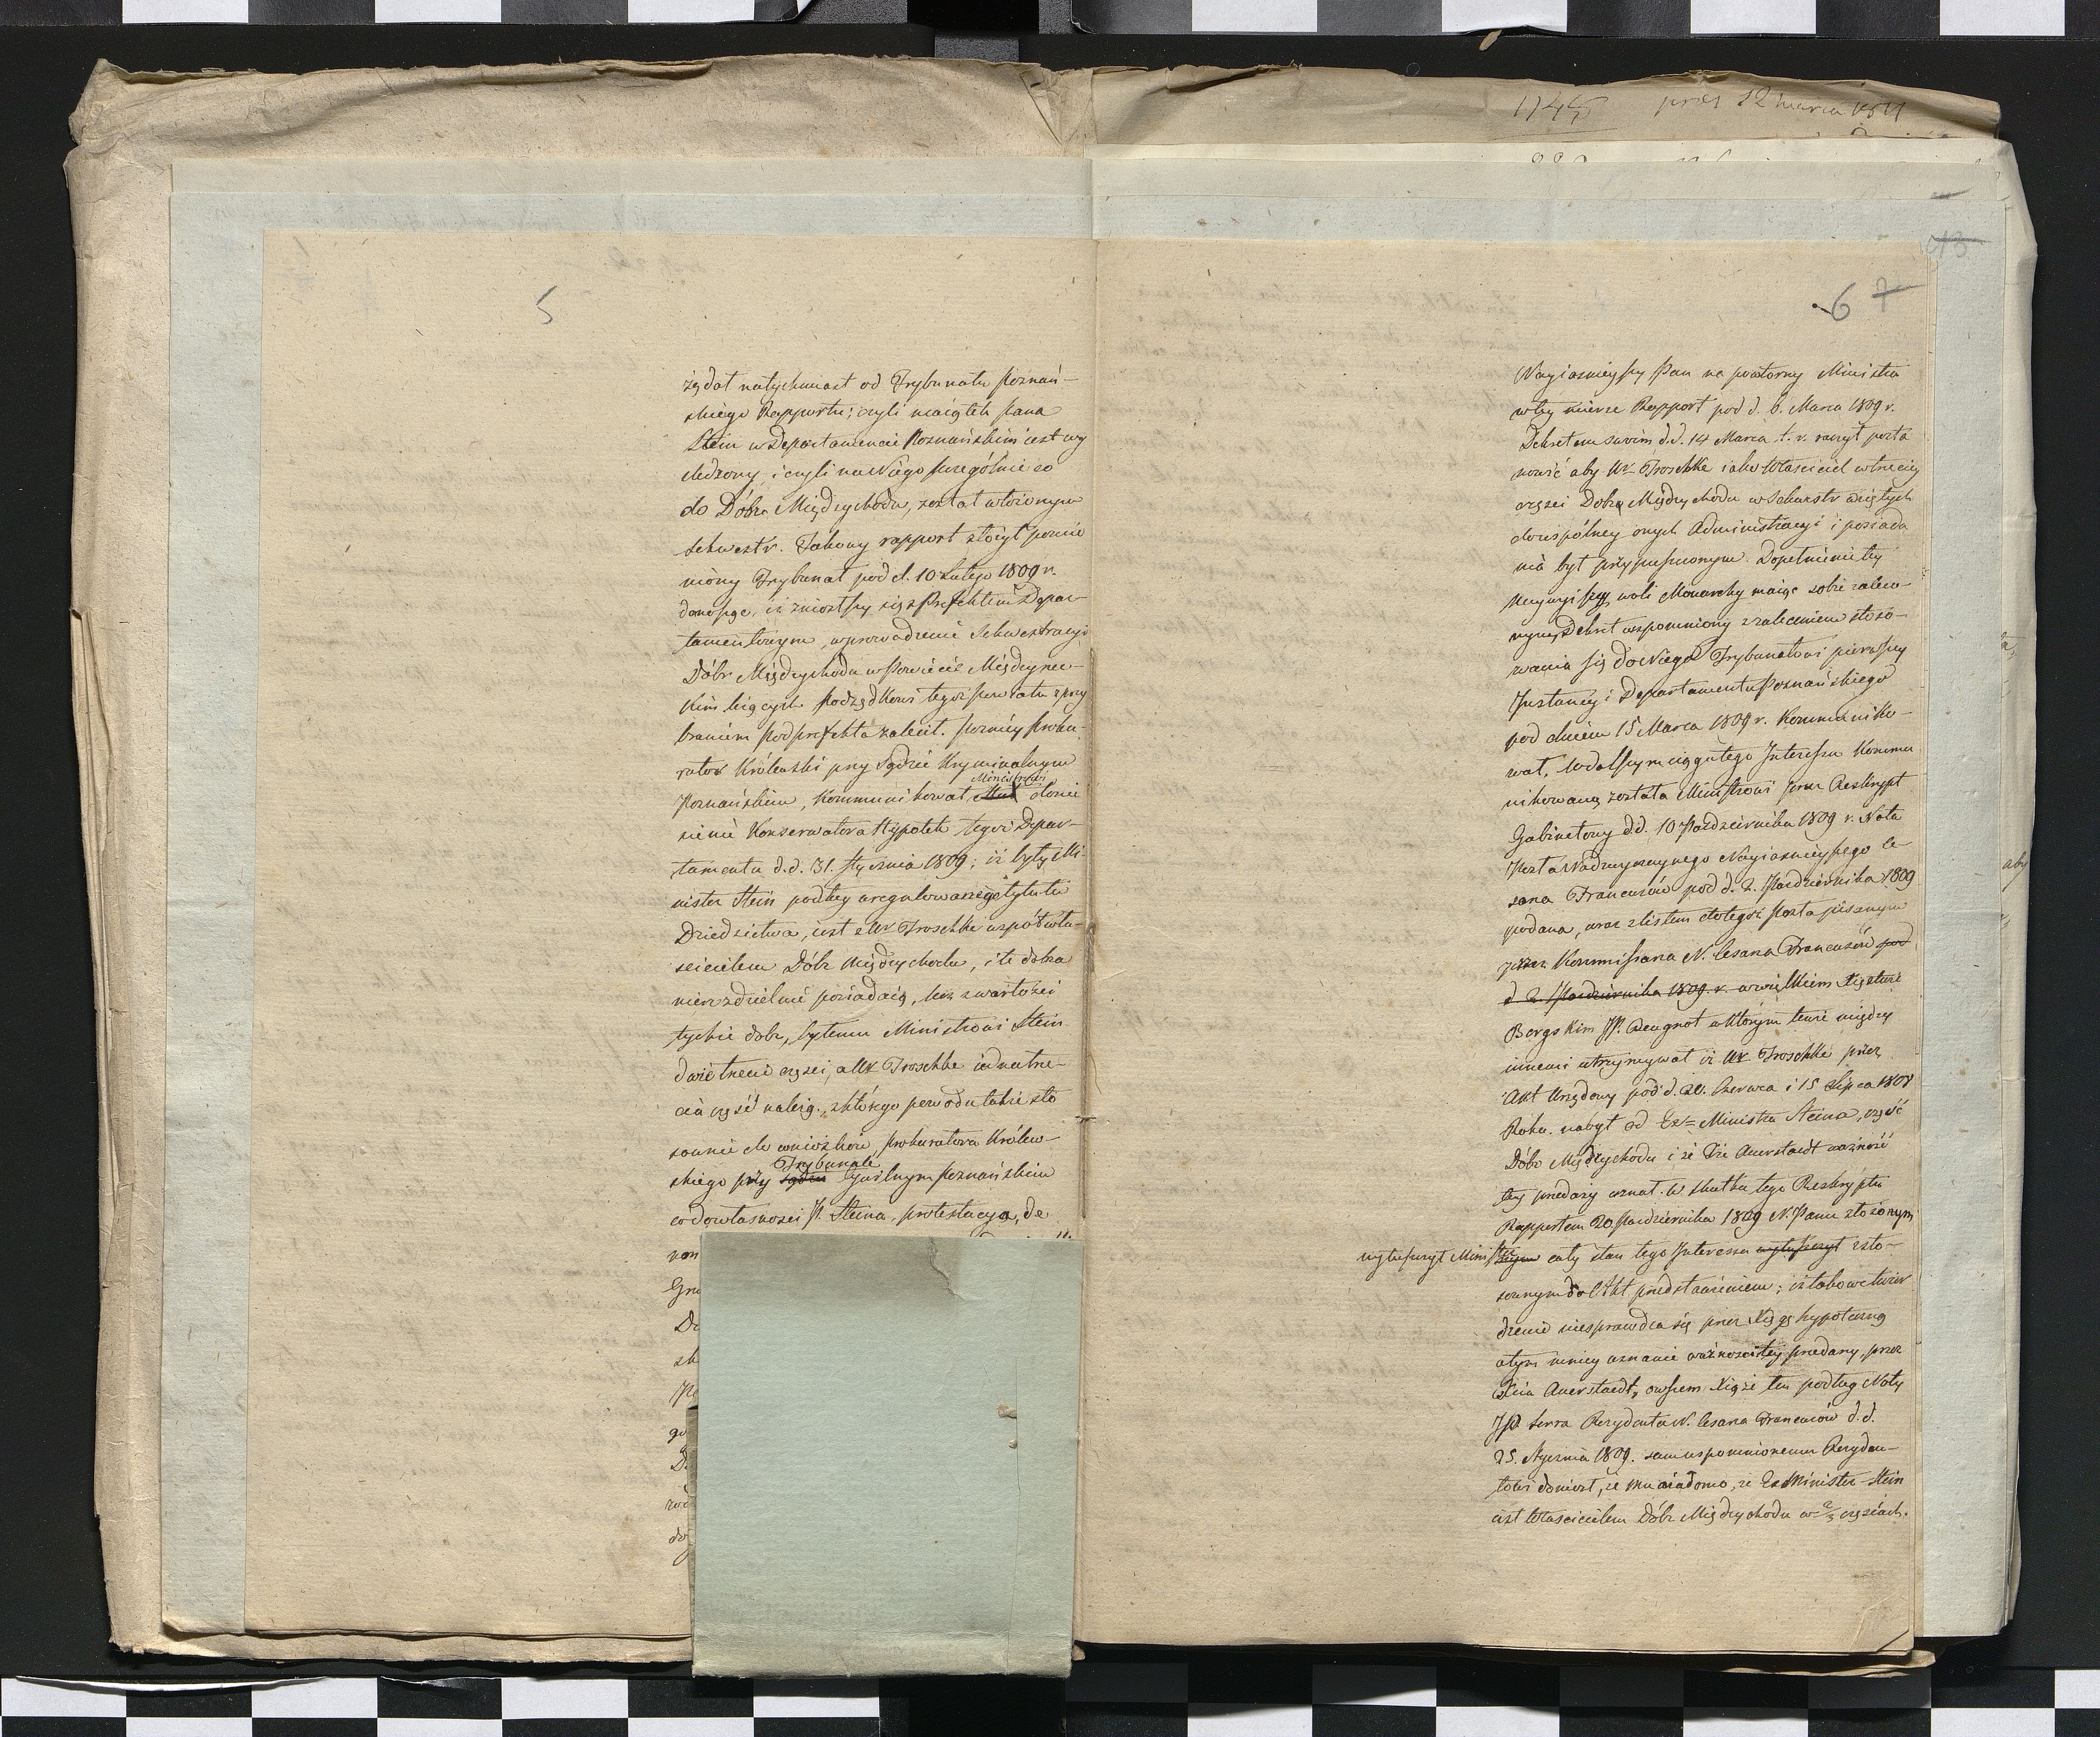 1745 prez 12 marca 1811
13
5
żądał natychmiast od Trybunału Poznań-
skiego Rapportu; czyli maiątek Pana
Stein w Departamencie Poznańskim iest wy
śledzony, i czyli na Niego szczególnie co
do Dóbr Międzychodu, został włożonym
Sekwestr. Takowy rapport złożył pomie
niony Trybunał pod d. 10 Lutego 1809 r.
donosząc, iż zniosłszy się z Prefektem Depar-
tamentowym, wprowadzenie Sekwestracyi
Dóbr Międzychodu w Powiecie Międzyrzec-
kim leżących Podsędkowi tegoż Powiatu z przy
braniem Podprefekta zalecił. Pozniey Proku-
rator Królewski przy Sądzie Kryminalnym
Ministrowi
Poznańskim, Kommunikował donie
sienie Konserwatora Hypotek tegoż Depar-
tamentu d.d. 31. Stycznia 1809; iż były Mi-
nister Stein podług uregulowanego tytułu
Dziedzictwa, iest z Ur Troschke współwła-
ścicielem Dóbr Międzychodu, i te dobra
nierozdzielnie posiadaią, lecz z wartości
tychże dobr, byłemu Ministrowi Stein
dwie trzecie części, a Ur Troschke iedna trze-
cia część należą, z którego powodu także sto
sownie do wniosków, Prokuratora Królew-
Trybunale
skiego przy sądzie Cywilnym Poznańskim
co do własności P. Steina, protestacya, de
non
Gru
Do
sk
Po
go
Do
rod
do
6 7
Nayiaśnieyszy Pan na powtorny Ministra
w tey mierze Rapport pod d. 6. Marca 1809 r.
Dekretem swoim d.d. 14 Marca t. r. raczył posta
nowić aby Ur Troschke iako Właściciel w trzeciey
części Dobr Międzychodu w Sekwestr wziętych
do wspólney onych Administracyi i posiada
nia był przypuszczonym. Dopełnienie tey
Naywyższey woli Monarchy maiąc sobie zaleco-
nym, Dekret wspomniony z zaleceniem stoso-
wania się do Niego Trybunałowi pierwszey
Instancyi Departamentu Poznańskiego
pod dniem 15 Marca 1809 r. Kommuniko-
wał. W dalszym ciągu tego Interessu Kommu
nikowaną została Ministrowi przez Reskrypt
Gabinetowy d.d. 10 Pazdziernika 1809 r. Nota
Posła Nadzwyczaynego Nayiaśnieyszego Ce-
sarza Francuzów pod d. 2. Pazdziernika 1809
podana, wraz z listem do tegoż Posła pisanym
przez Kommissarza N. Cesarza Francuzów pod
d. 2. Pazdziernika 1809. r. w wielkiem Xięstwie
Bergskim JP. Beugnot w którym tenże między
innemi utrzymywał iż Ur. Troschke przez
Akt Urzędowy pod d. 20. Czerwca i 15 Lipca 1808
Roku. nabył od Ex=Ministra Steina, część
Dóbr Międzychodu i że Xże Auerstaedt ważność
tey przedaży uznał. W skutku tego Reskryptu
Rapportem 20 Pazdziernika 1809 N. Panu złożonym
wytłuszczył Minister cały stan tego Interessu wytłuszczył zsto-
sownym do Akt przedstawieniem; iż takowe twier
dzenie niesprawdza się przez Xięgę hypoteczną
a tym mniey uznanie ważności tey przedaży, przez
Xcia Auerstaedt, owszem Xiąże ten podług Noty
JP. Serra Rezydenta N. Cesarza Francuzów d.d.
25. Stycznia 1809. sam wspomnionemu Rezyden-
towi doniosł, że mu wiadomo, że Ex Minister Stein
iest Właścicielem Dóbr Międzychodu w 2/3 częściach.
aby